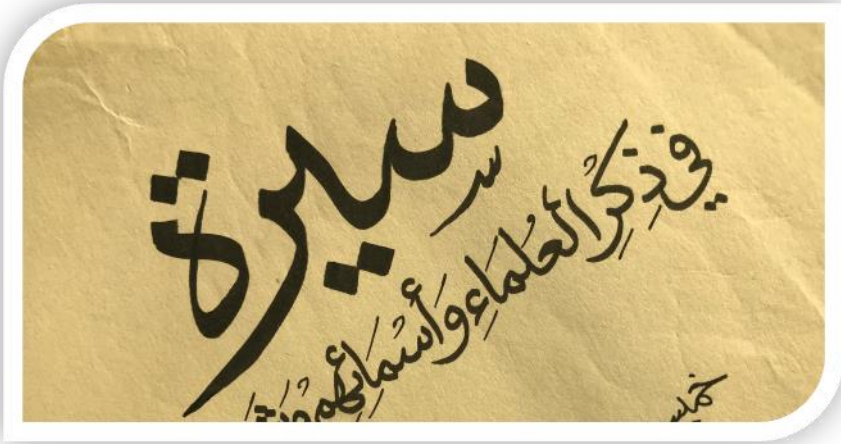 سيرة
في ذِكْرِ العُلمَاءِ وَأَسْمَائِهِم